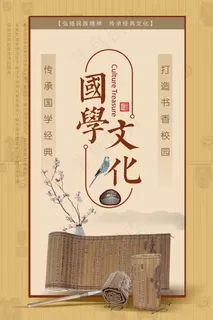 【弘扬民族精神 传承经典文化】
传承国学经典
國學文化
Culture Treasure
打造书香校园